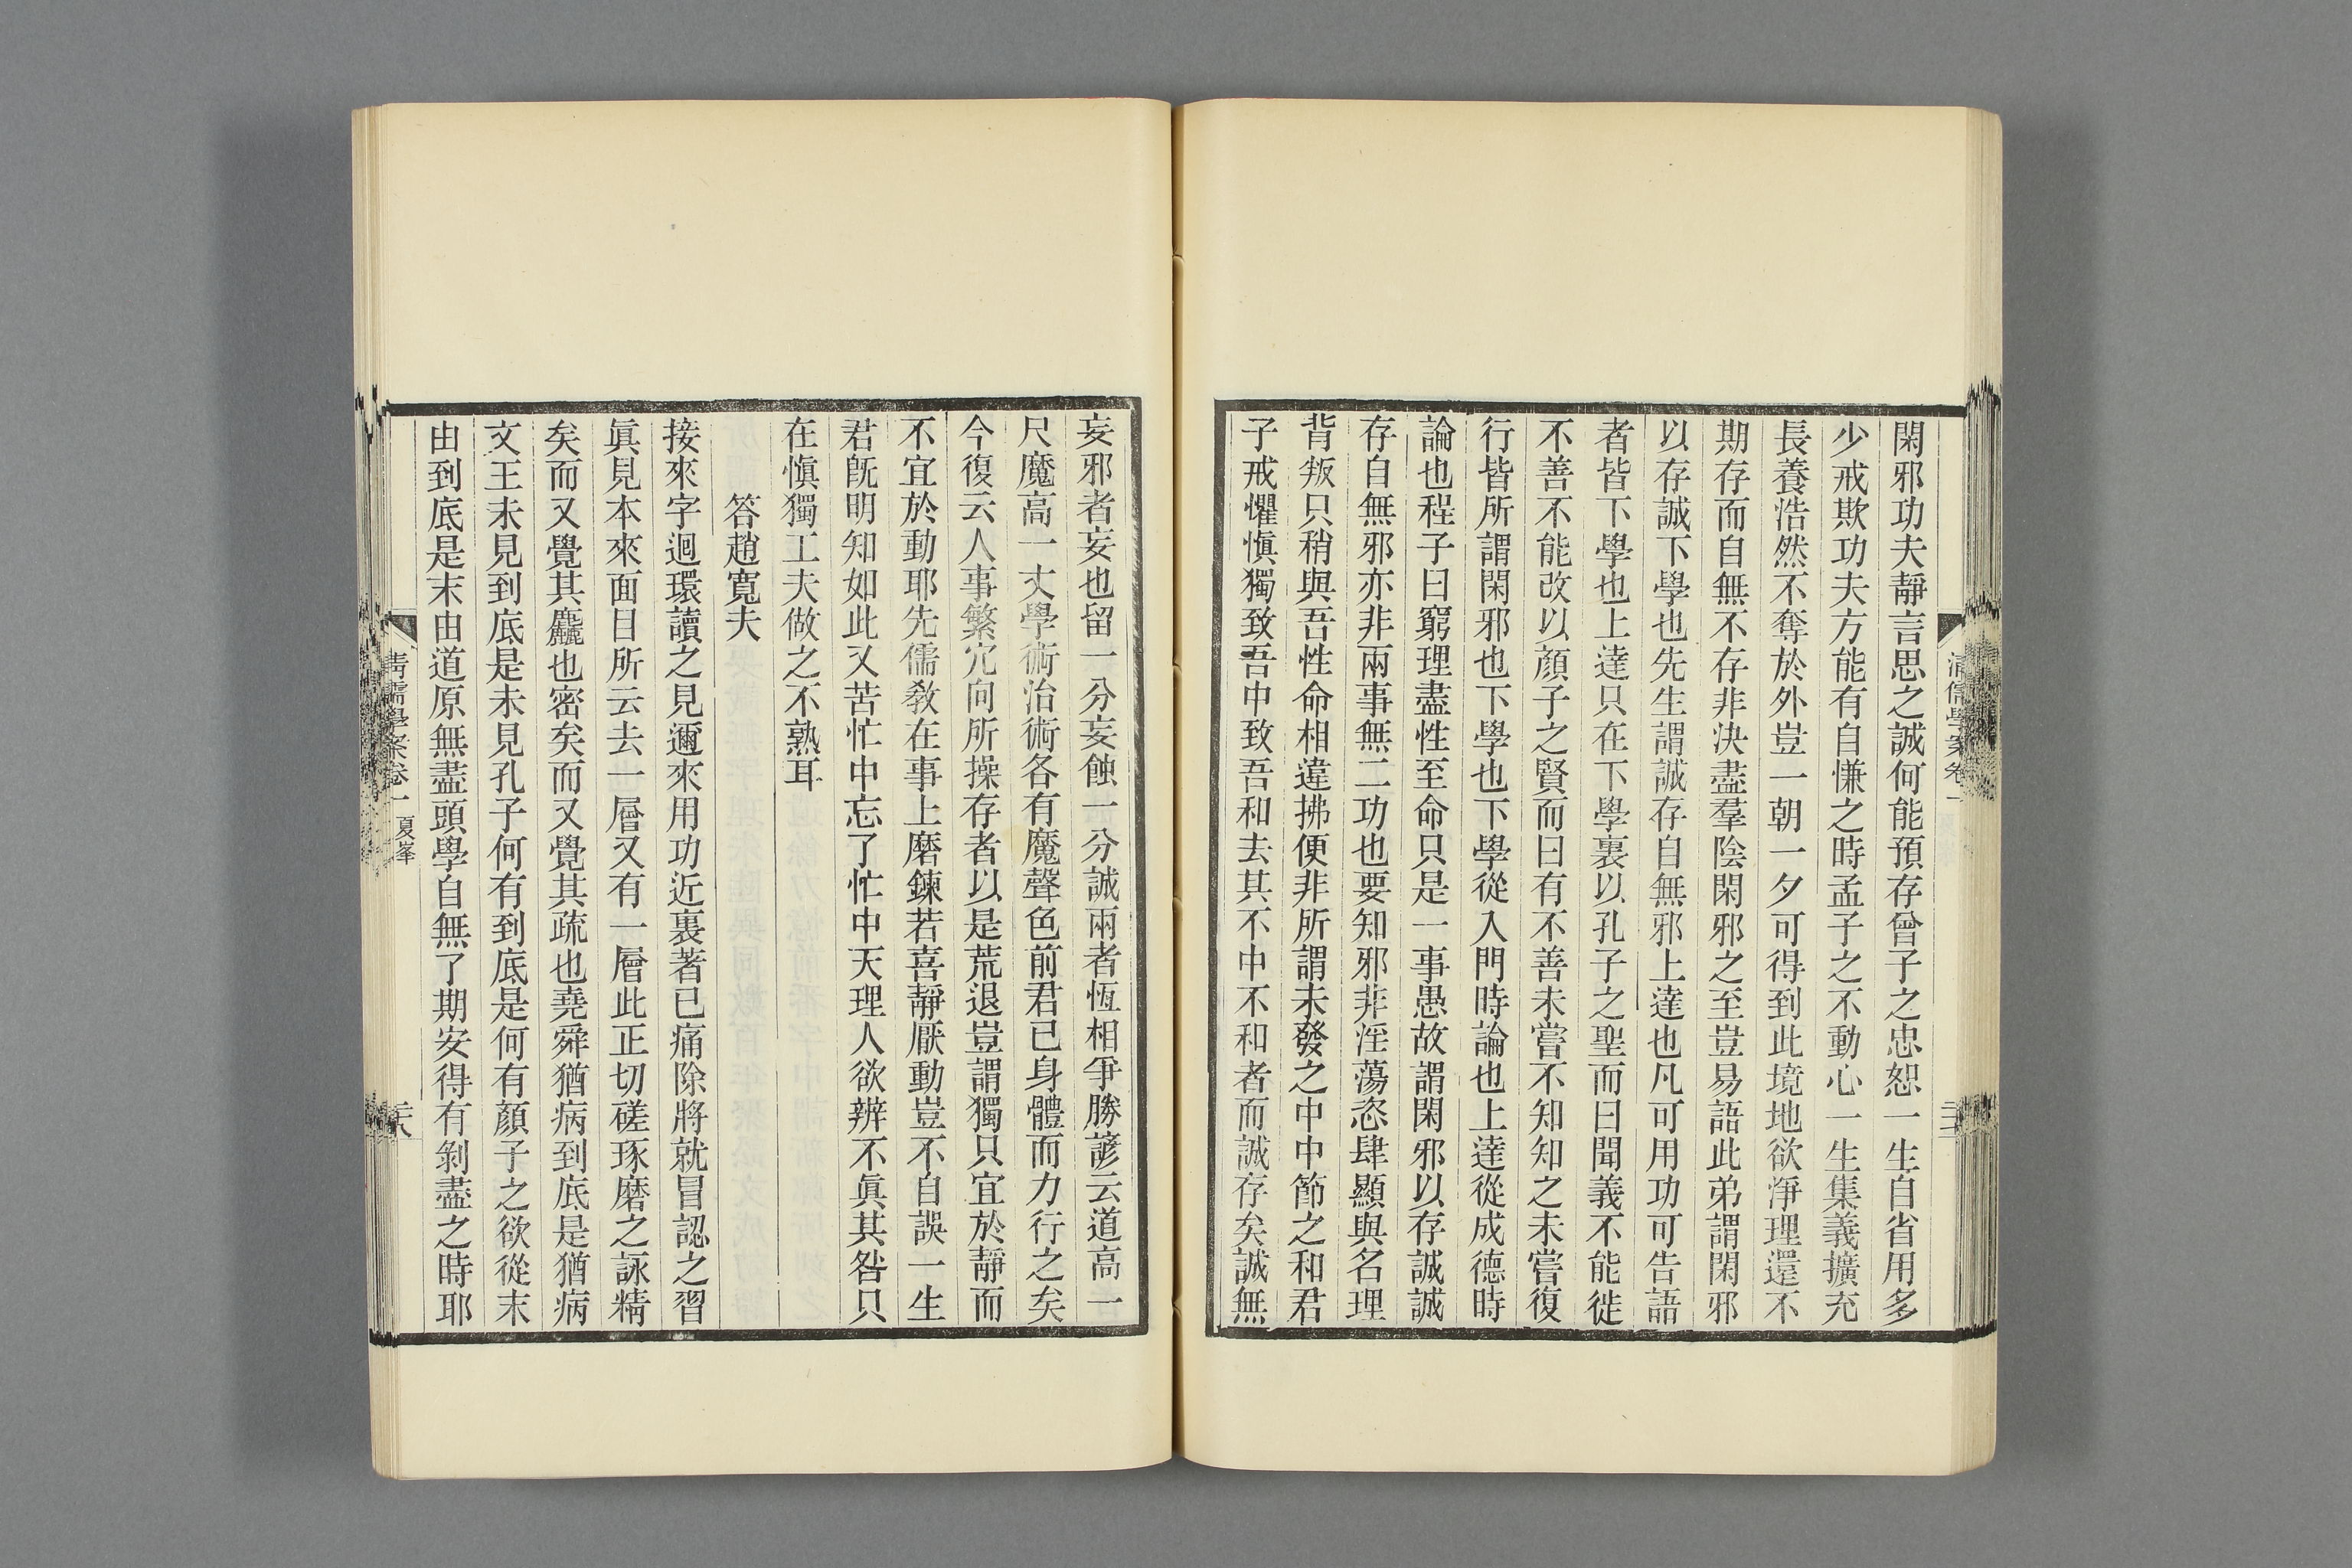 閑邪功夫靜言思之誠何能預存曾子之忠恕一生自省用多
少戒欺功夫方能有自慊之時孟子之不動心一生集義擴充
長養浩然不奪於外豈一朝一夕可得到此境地欲淨理還不
期存而自無不存非決盡羣陰閑邪之至豈易語此弟謂閑邪
以存誠下學也先生謂誠存自無邪上達也凡可用功可告語
者皆下學也上達只在下學裏以孔子之聖而曰聞義不能徙
不善不能改以顏子之賢而曰有不善未嘗不知知之未嘗復
行皆所謂閑邪也下學也下學從入門時論也上達從成德時
論也程子曰窮理盡性至命只是一事愚故謂閑邪以存誠誠
存自無邪亦非兩事無二功也要知邪非淫蕩恣肆顯與名理
背叛只稍與吾性命相違拂便非所謂未發之中中節之和君
子戒懼愼獨致吾中致吾和去其不中不和者而誠存矣誠無
清儒學案卷一
妄邪者妄也留一分妄蝕一分誠兩者恆相爭勝諺云道高一
尺魔高一丈學術治術各有魔聲色前君已身體而力行之矣
今復云人事繁宂向所操存者以是荒退豈謂獨只宜於靜而
不宜於動耶先儒敎在事上磨鍊若喜靜厭動豈不自誤一生
君旣明知如此又苦忙中忘了忙中天理人欲辨不眞其咎只
在愼獨工夫做之不熟耳
答趙寬夫
接來字迴環讀之見邇來用功近裏著已痛除將就冒認之習
眞見本來面目所云去一層又有一層此正切磋琢磨之詠精
矣而又覺其麤也密矣而又覺其疏也堯舜猶病到底是猶病
文王未見到底是未見孔子何有到底是何有顏子之欲從末
由到底是末由道原無盡頭學自無了期安得有剝盡之時耶
清儒學案卷一 夏峯